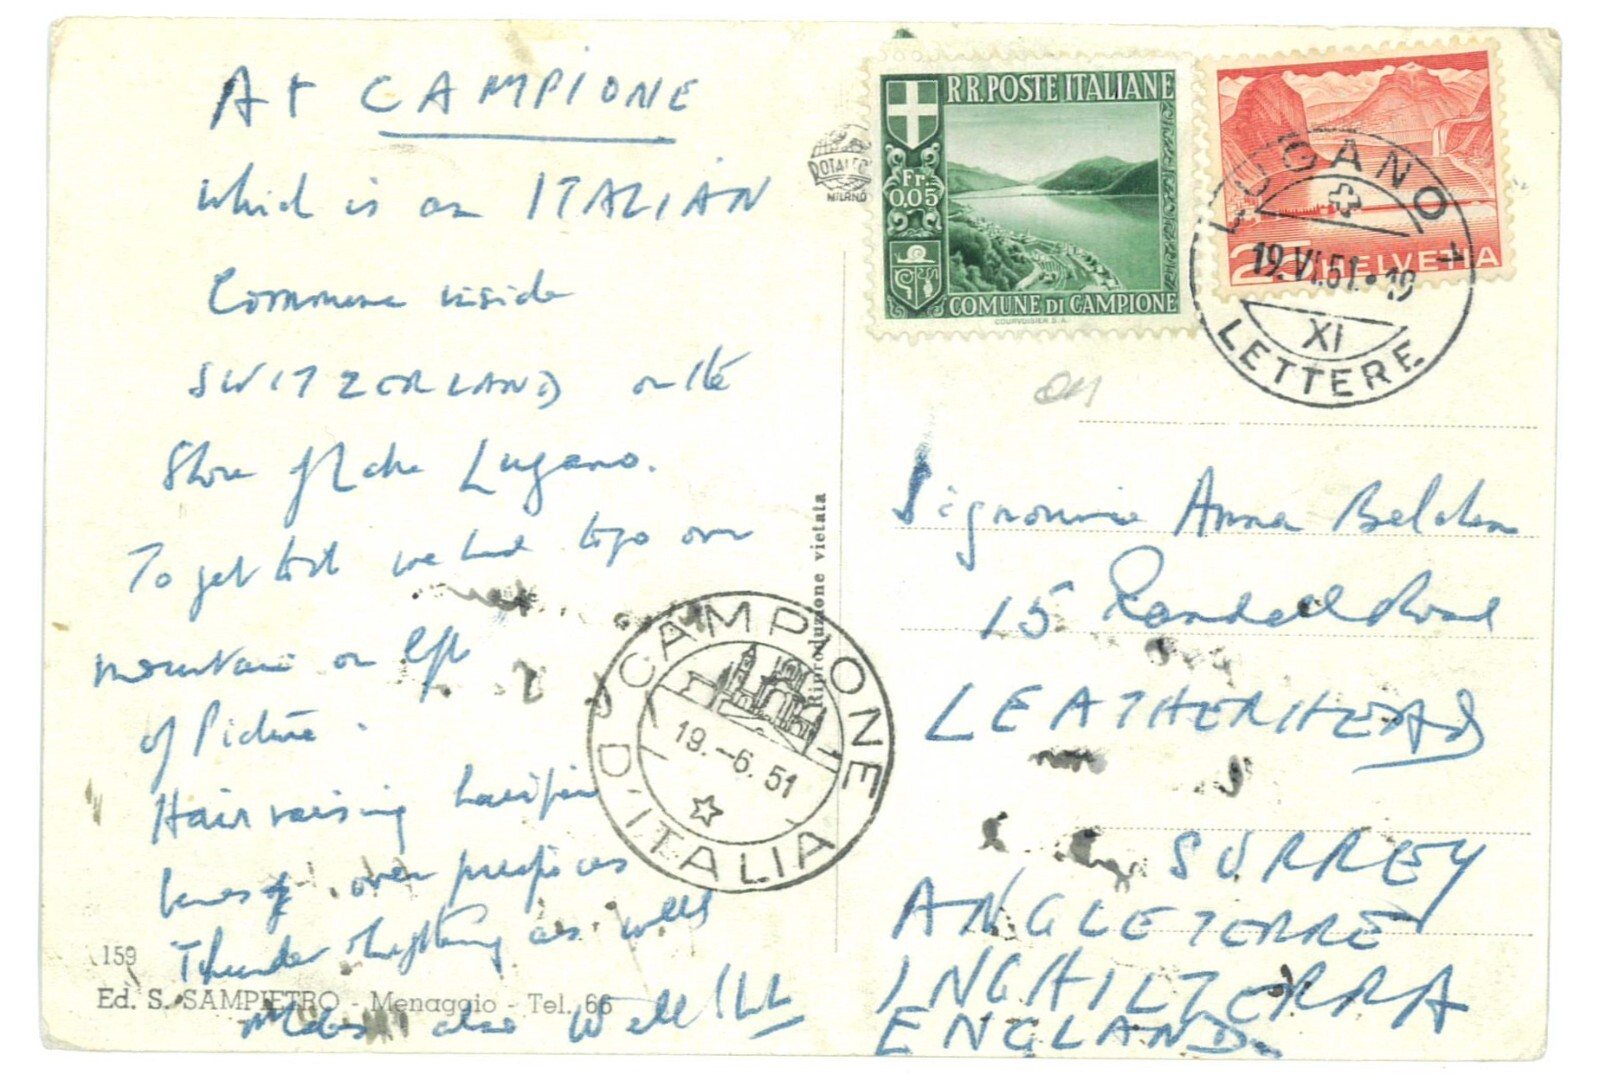 At CAMPIONE
which is an ITALIAN
Commune inside
SWITZERLAND on the
Shore of Lake Lugano.
To get to it we had to go over
mountain on left
of Picture.
Hair raising hairpin
bends over precipices
Thunder & lightning as well
also Well
159
Ed. S. SAMPIETRO - Menaggio - Tel. 66
Riproduzione vietata
ROTALFO
MILANO
R R. POSTE ITALIANE
Fr.
0,05
COMUNE DI CAMPIONE
COURVOISIER S.A.
25 HELVETIA
LUGANO 1
19.VI.51.-19
XI
LETTERE
CAMPIONE D'ITALIA
19.-6.51
Signorina Anna Belchem
15 Randall Road
LEATHERHEAD
SURREY
ANGLETERRE
INGHILTERRA
ENGLAND.